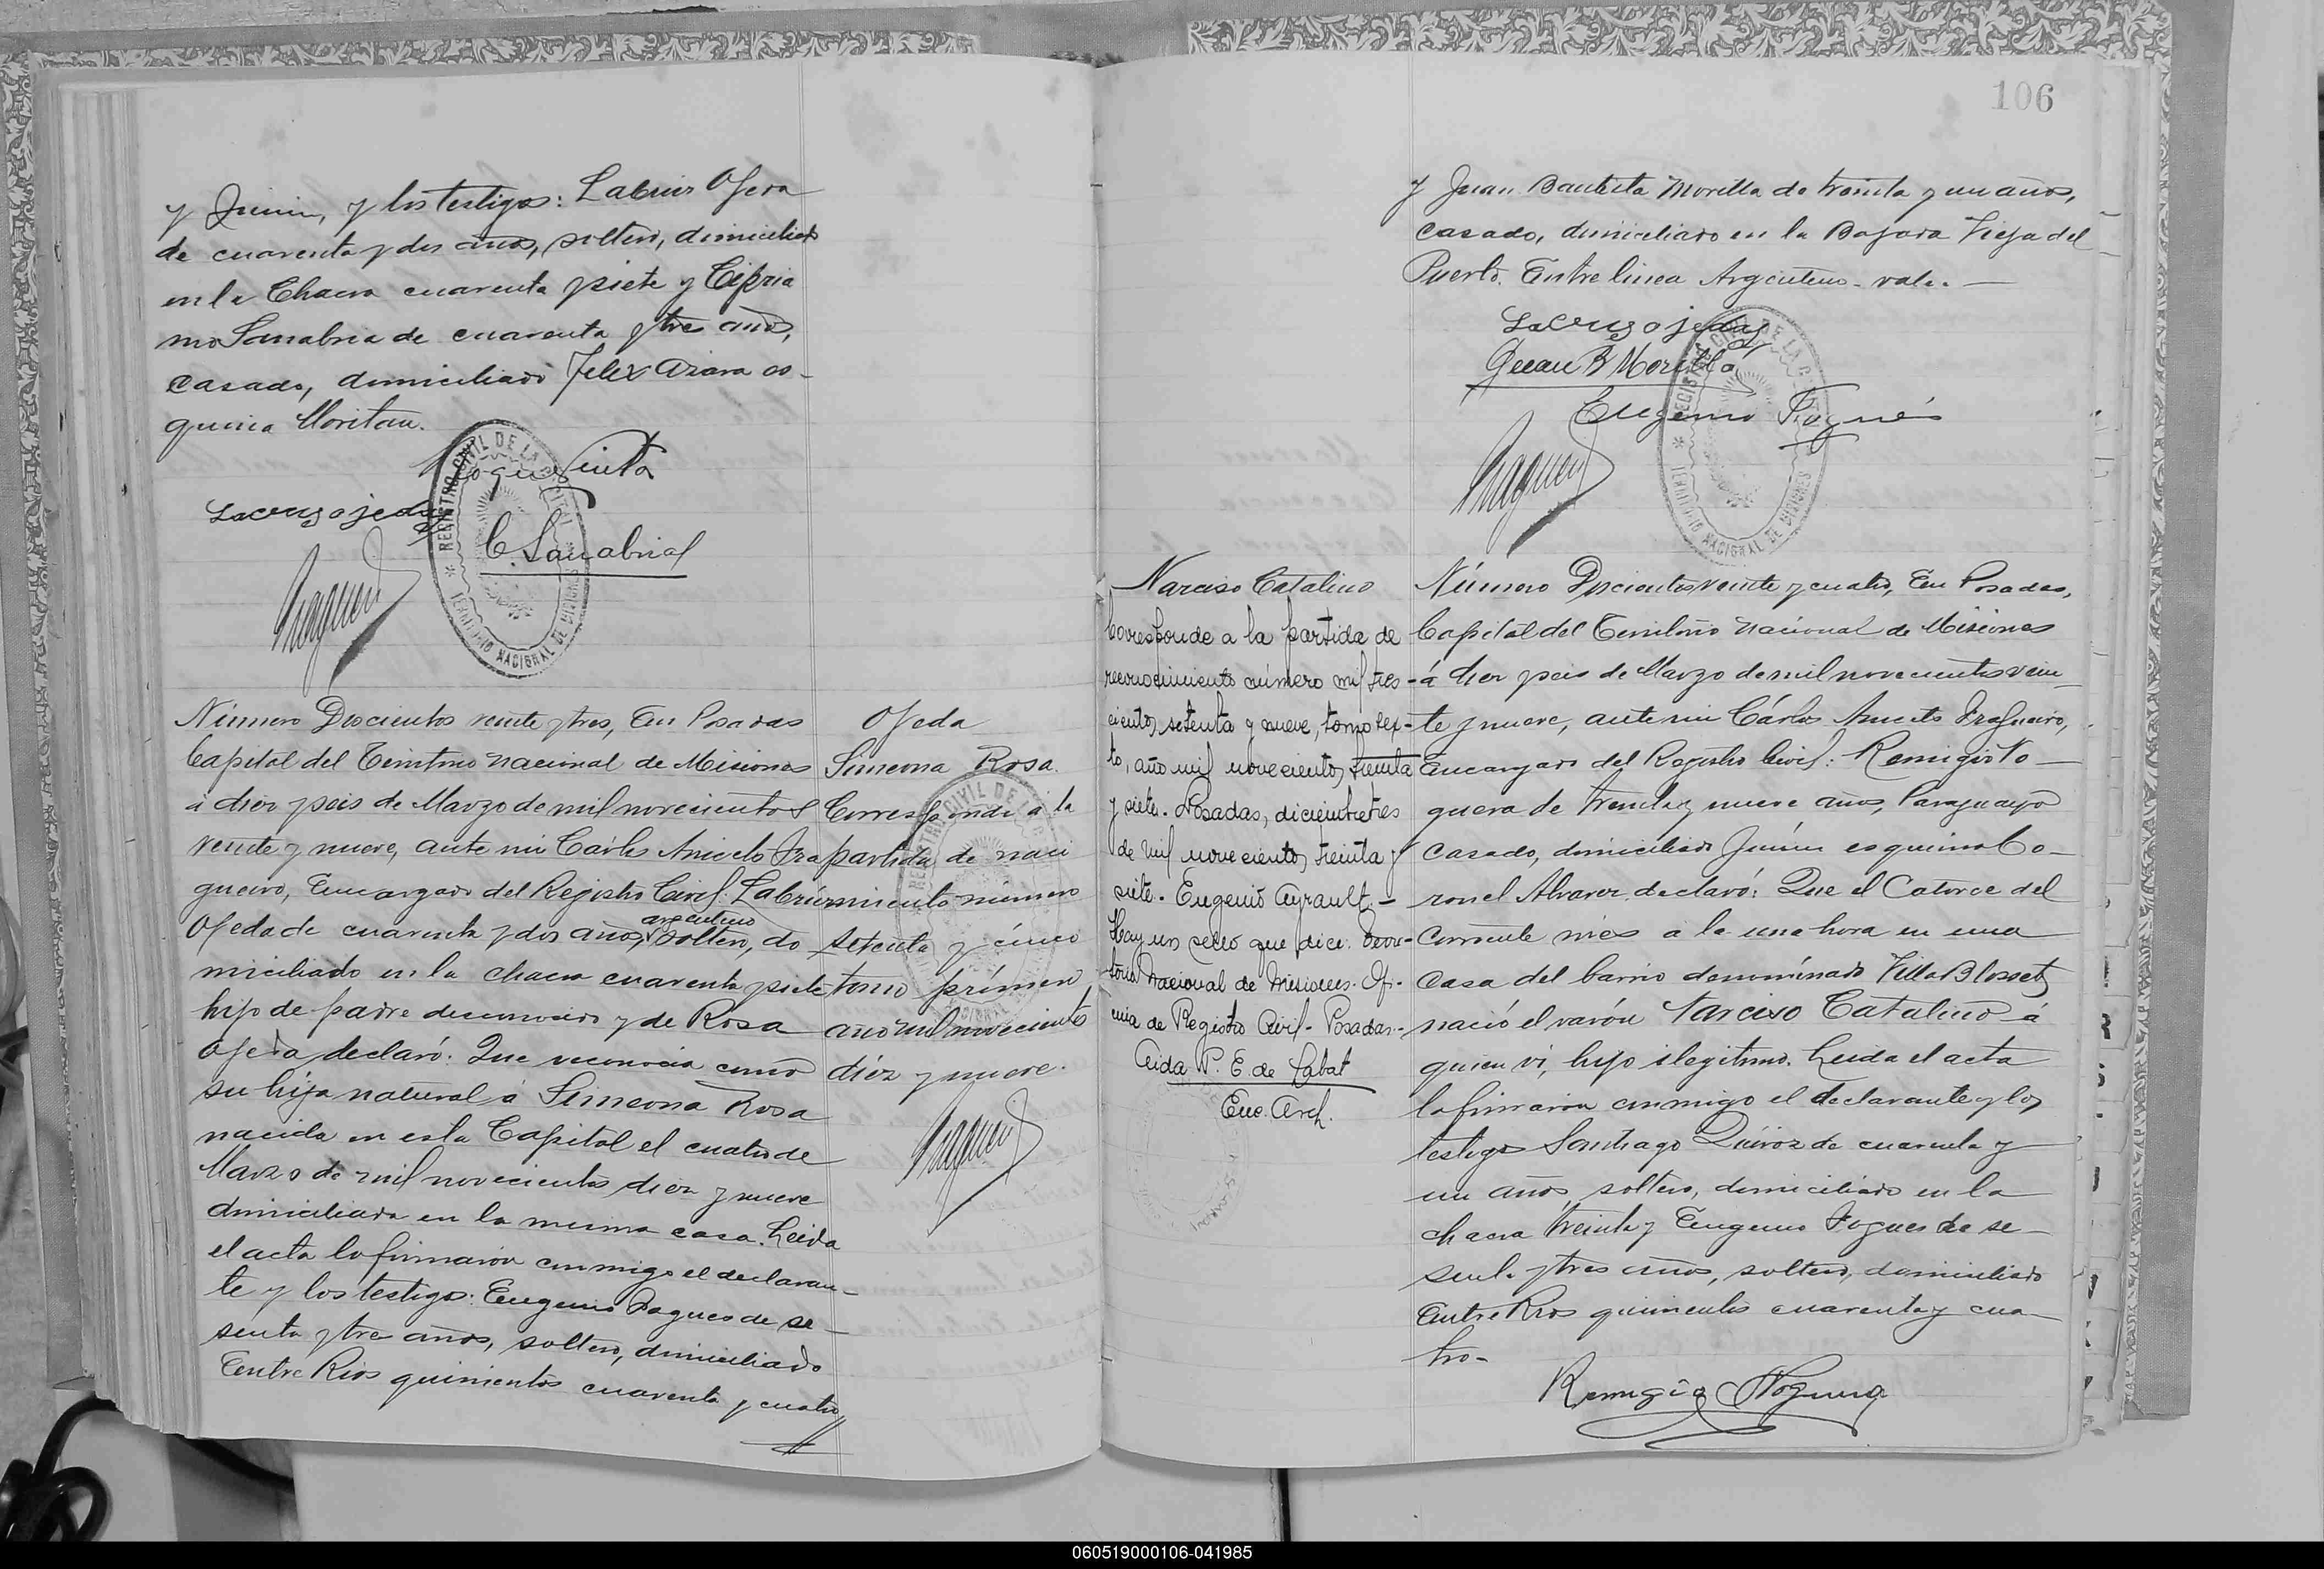 y Junin, y los testigos: Labriz Ojeda
de cuarenta y dos años, soltero, domiciliado
en la Chacra cuarenta y siete y Cipria
no Sanabria de cuarenta y tres años,
casado, domiciliado Felix Azara es-
quina Moritan.
Roque
Lacruz ojeda
C. Sanabria
REGISTRO CIVIL DE LA CAPITAL
TERRITORIO NACIONAL DE MISIONES
Número Doscientos veinte y tres, En Posadas
Capital del Territorio Nacional de Misiones
á diez y seis de Marzo de mil novecientos
veinte y nueve, ante mi Cárlos Aniceto Fra
gueiro, Encargado del Registro Civil: Labriz
argentino
Ojeda de cuarenta y dos años, soltero, do
miciliado en la chacra cuarenta y siete
hijo de padre desconocido y de Rosa
Ojeda, declaró: Que reconocia como
su hija natural á Simeona Rosa
nacida en esta Capital el cuatro de
Marzo de mil novecientos diez y nueve
domiciliada en la misma casa. Leida
el acta la firmaron conmigo el declaran-
te y los testigos: Eugenio Pagues de se-
senta y tres años, soltero, domiciliado
Entre Rios quinientos cuarenta y cuatro
Ojeda
Simeona Rosa.
Corresponde á la
partida de naci
miento número
setenta y cinco
tomo primero,
año mil novecientos
diez y nueve.
106
y Juan Bautista Morilla de treinta y un años,
casado, domiciliado en la Bajada Vieja del
Puerto. Entre linea Argentino - vale. -
Lacruz ojeda
Juan B Morilla
Eugenio Pagués
REGISTRO CIVIL DE LA CAPITAL
TERRITORIO NACIONAL DE MISIONES
Narciso Catalino
Corresponde a la partida de
reconocimiento número mil tres-
cientos setenta y nueve, tomo sex-
to, año mil novecientos treinta
y siete. Posadas, diciembre tres
de mil novecientos treinta y
siete. Eugenio Ayrault. -
Hay un sello que dice: Terri-
torio Nacional de Misiones. Ofi-
cina de Registro Civil - Posadas.-
Aida P. E. de Labat
Enc. Arch.
Número Doscientos veinte y cuatro, En Posadas,
Capital del Territorio Nacional de Misiones
á diez y seis de Marzo de mil novecientos vein-
te y nueve, ante mi Cárlos Aniceto Fragueiro,
Encargado del Registro Civil: Remigio No-
guera de treinta y nueve años, Paraguayo
casado, domiciliado Junin esquina Co-
ronel Alvarez, declaró: Que el Catorce del
corriente mes a la una hora en una
casa del barrio denominado Villa Blosset
nació el varón Tarciso Catalino á
quien vi, hijo ilegitimo. Leida el acta
la firmaron conmigo el declarante y los
testigos Santiago Quiroz de cuarenta y
un años, soltero, domiciliado en la
chacra treinta y Eugenio Pagues de se-
senta y tres años, soltero, domiciliado
Entre Rios quinientos cuarenta y cua-
tro-
Remigio Noguera
060519000106-041985